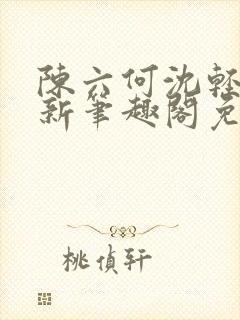 陳六何沈輕
新筆趣閣免
桃偵軒